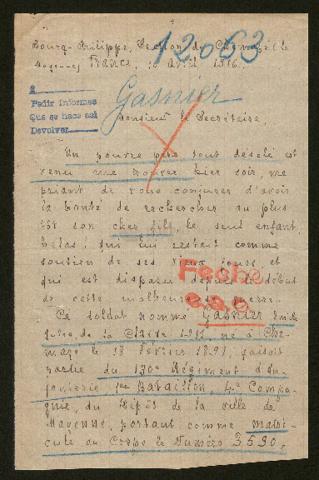 Bourg-Philippe, Section de Chemazé, le
12063
Mayenne, France, 10 Avril, 1916.
2
Pedir informes
Que se hace así
Devolver
Gasnier
Monsieur le Secrétaire,
Un pauvre père tout désolé est
venu me trouver hier soir, me
priant de vous conjurer d'avoir
la bonté de rechercher au plus
tôt son cher fils, le seul enfant,
hélas! qui lui restait comme
soutien de ses vieux jours, et
qui est disparu depuis le début
de cette malheureuse guerre.
Fecha
Ce soldat nommé Gasnier Emile
de la Classe 1911, né à Che-
mazé le 18 Février 1891, faisait
partie du 130e Régiment d'In-
fanterie, 1er Bataillon, 4e Compa-
gnie, du Dépôt de la ville de
Mayenne, portant comme matri-
cule au Corps le Numéro 3590.